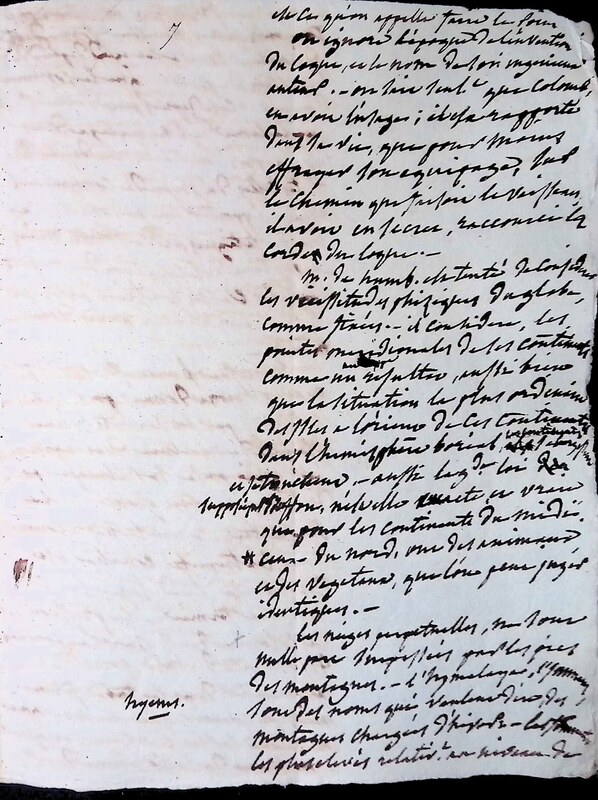 7
et ce qu'on appelle faire le point
on ignore l'époque de l'invention
du loque, et le nom de son ingenieux
auteur. - on sait seult que Colomb,
en avoit l'usage; il est rapporté
dans sa vie, que pour moins
effrayer son equipage, sur
le chemin que faisoit le vaisseau,
il avoit en secret, raccourci la
corde du loque. -
m. de humb. est tenté de considerer
les vicissitudes phisiques du globe,
comme finies. - il considere, les
pointes meridionales de ses continents
comme un resultat, aussi bien
que la situation la plus ordinaire
des isles a l'orient de ces continents
dans l'hemisphère boréal,
- aussi la gde loi
supposée par Buffon, n'est elle exacte, et vraie
que pour les continents du midi.
ceux du nord, ont des animaux
et des vegetaux, que l'on peut juger
identiques. -
les neiges perpetuelles, ne sont
nulle part surpassées par les pics
des montagnes. - l'hymelaya, l'
sont des noms qui veulent dire des
montagnes chargées d'hivers -
hyems.
les plus elevés relativt. au niveau de